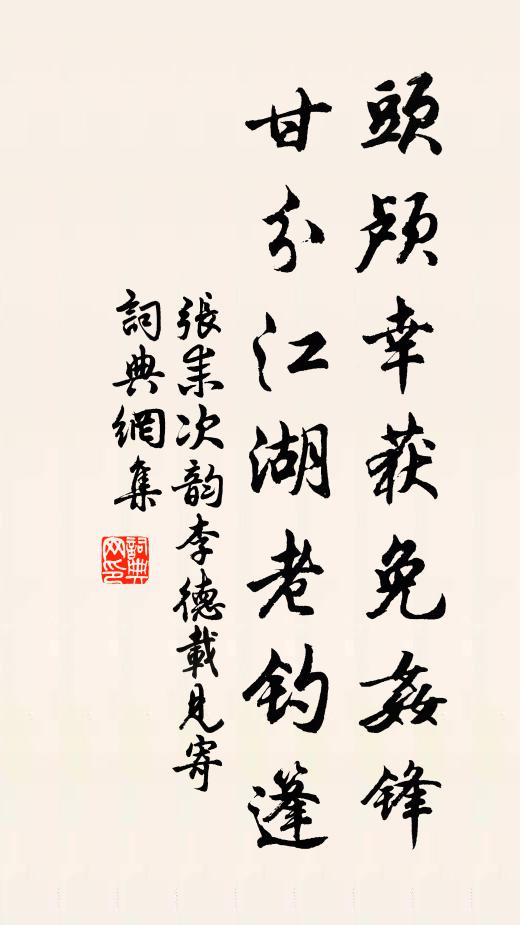 頭顱幸获免姦鋒
甘分江湖老釣篷
張耒次韵李德載見寄
詞典網集
詞典
网印